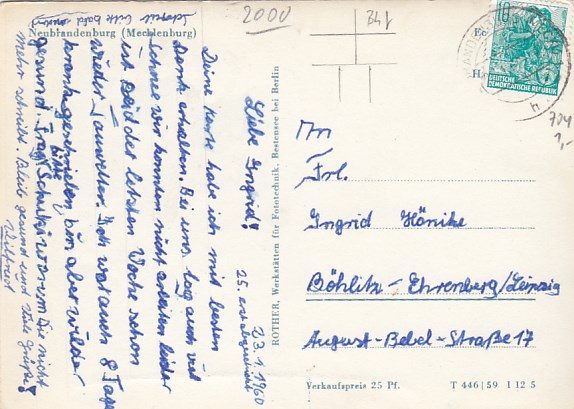 Schreib bitte bald wieder!
Neubrandenburg (Mecklenburg)
23.1.1960
25. erst abgeschickt
Liebe Ingrid!
Deine Karte habe ich mit besten
Dank erhalten. Bei uns lag auch viel
Schnee wir konnten nicht arbeiten leider
ist seid der letzten Woche schon
wieder Tauwetter. Ich war auch 8 Tage
krank geschrieben bin aber wieder
gesund. Frag bitte Schulki warum sie nicht
mehr schreibt. Bleib gesund und viele Grüße!
Wilfried
ROTHER, Werkstätten für Fototechnik, Bestensee bei Berlin
2000
34f
10
DEUTSCHE
DEMOKRATISCHE REPUBLIK
704
1,-
An
Frl.
Ingrid Hönike
Böhlitz-Ehrenberg/Leipzig
August-Bebel-Straße 17
Verkaufspreis 25 Pf.
T 446|59 I 12 5